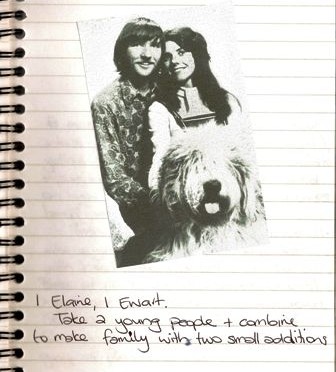 1 Elaine, 1 Ewart.
Take 2 young people + combine
to make family with two small additions